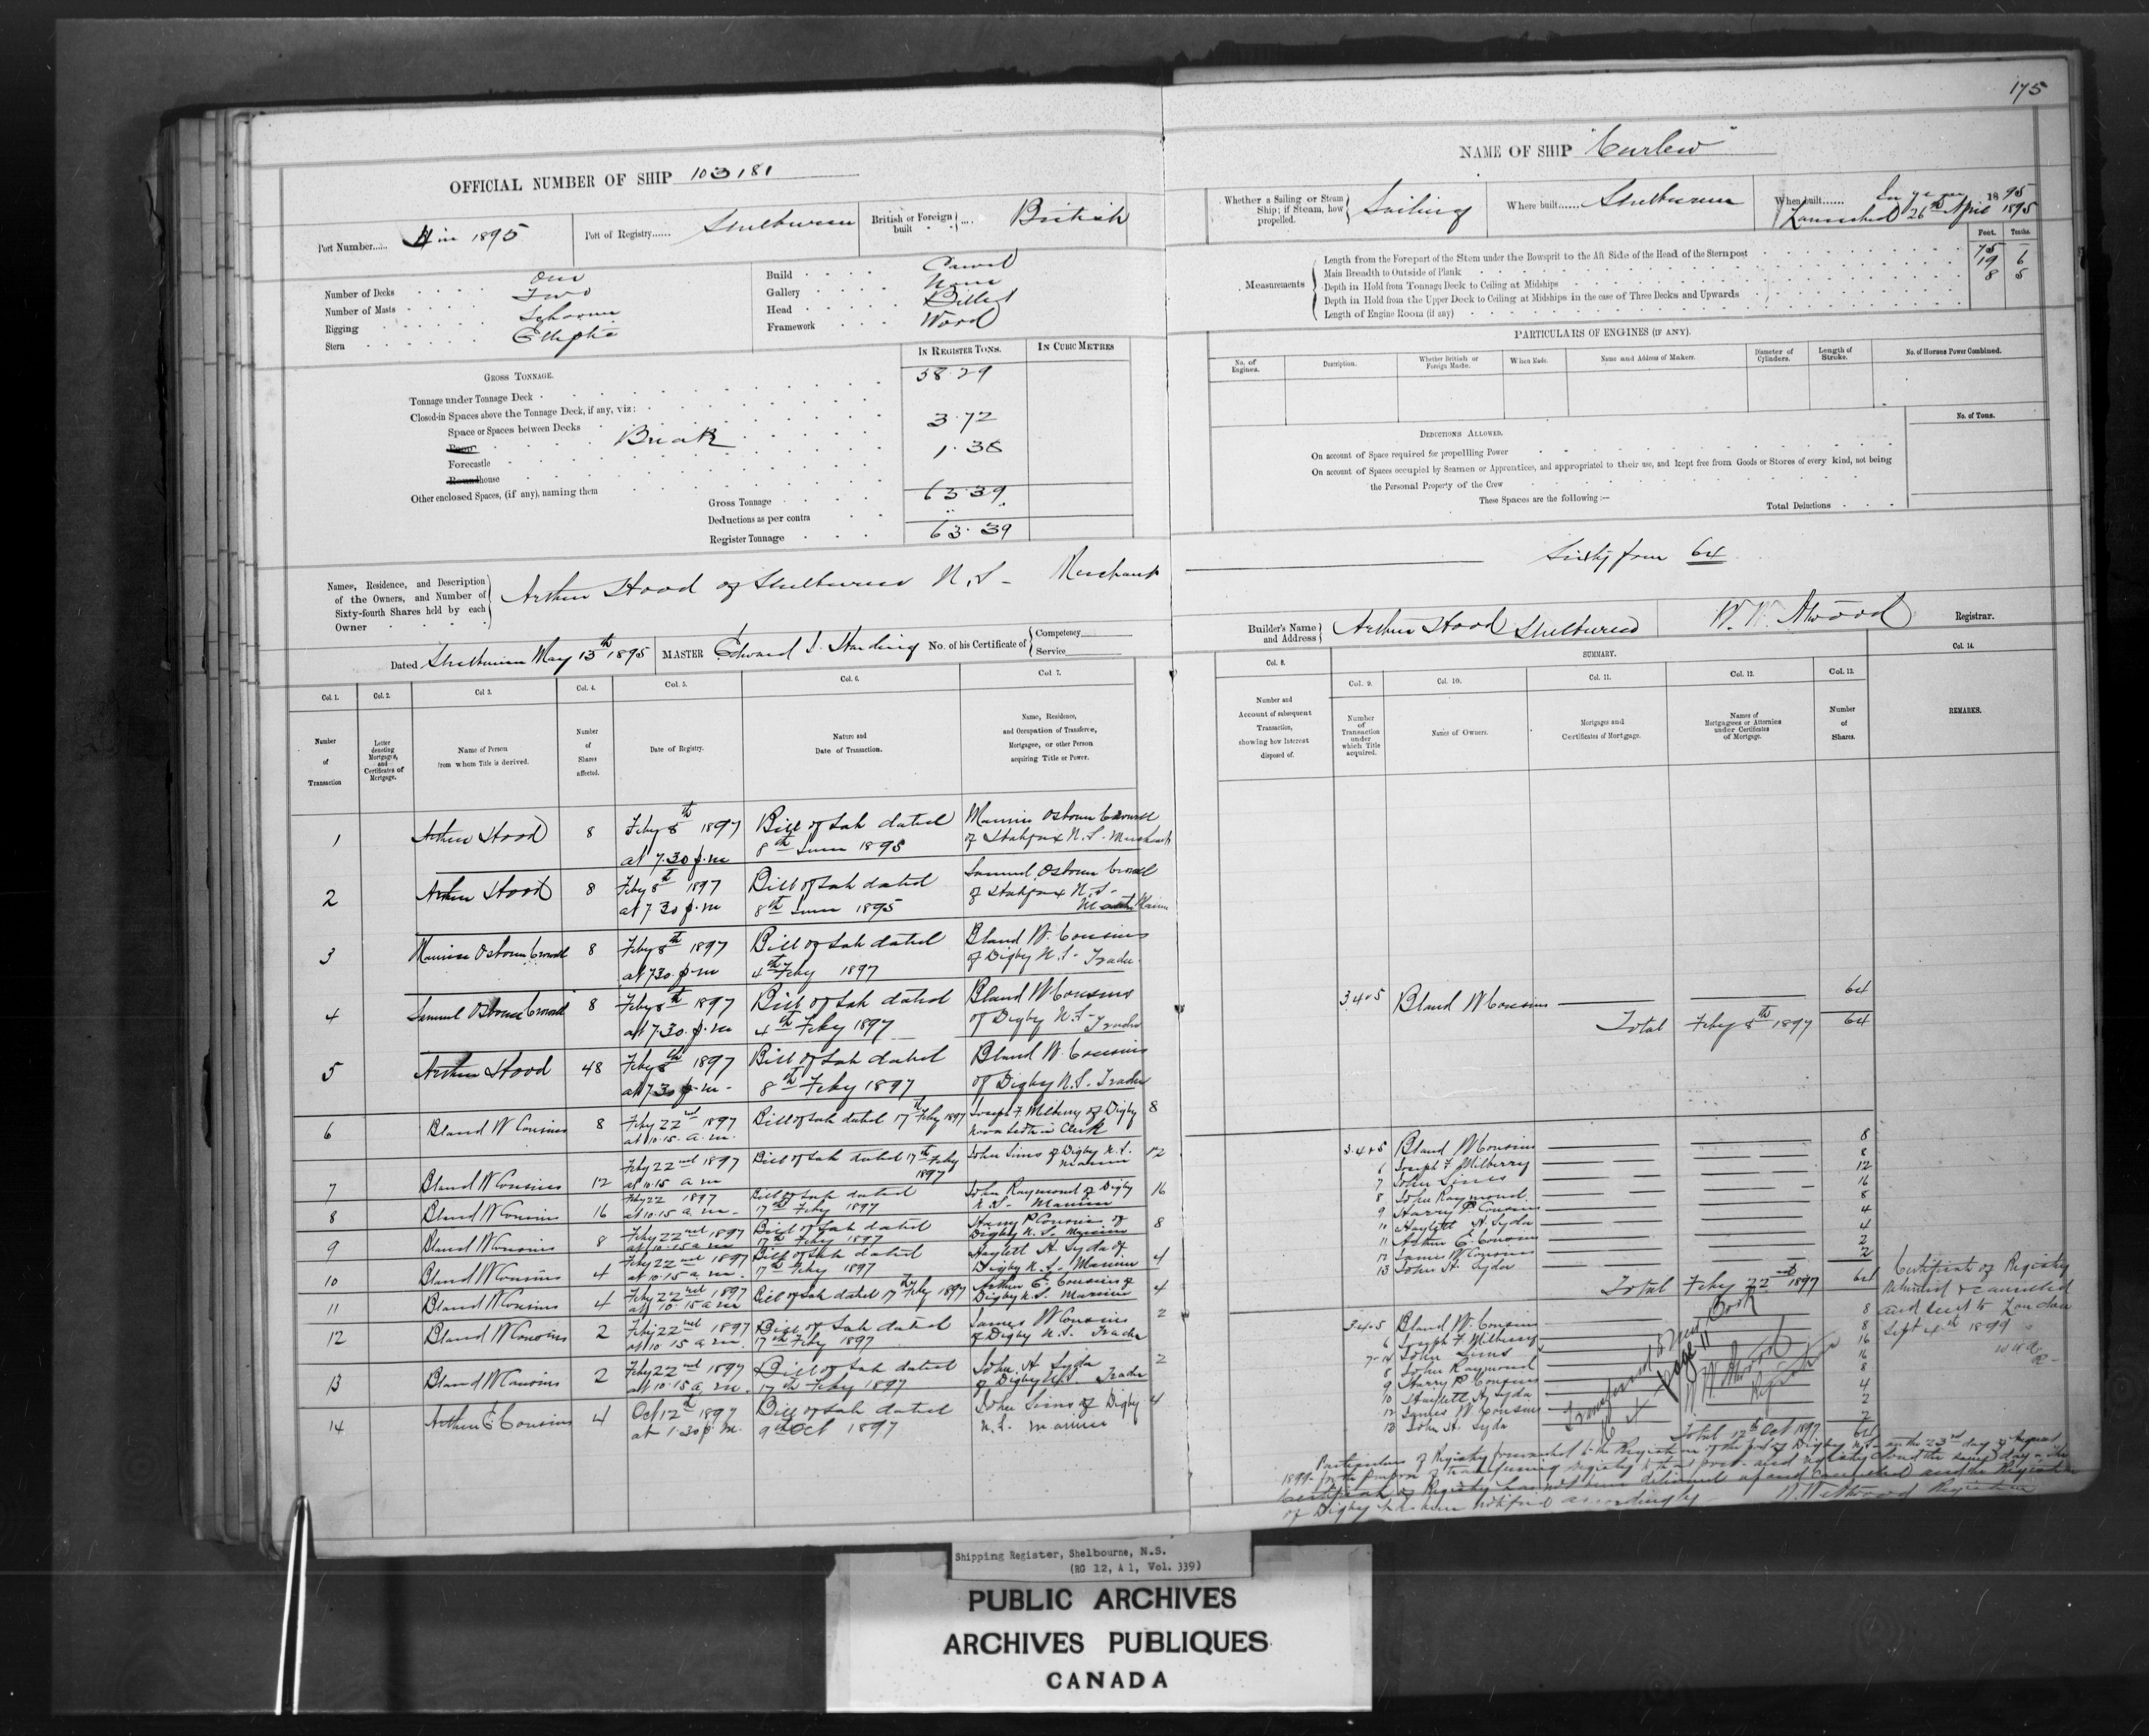 175
OFFICIAL NUMBER OF SHIP 103181
NAME OF SHIP "Curlew"
Port Number..... 4 in 1895
Port of Registry...... Shelburne
British or Foreign built .... British
Whether a Sailing or Steam Ship; if Steam, how propelled. Sailing
Where built...... Shelburne
When built...... In year 1895
Launched 26th April 1895
Number of Decks One
Number of Masts Two
Rigging Schooner
Stern Elliptic
Build Carvel
Gallery None
Head Billet
Framework Wood
Measurements
Feet. Tenths.
Length from the Forepart of the Stem under the Bowsprit to the Aft Side of the Head of the Sternpost 75 –
Main Breadth to Outside of Plank 19 6
Depth in Hold from Tonnage Deck to Ceiling at Midships 8 5
Depth in Hold from the Upper Deck to Ceiling at Midships in the case of Three Decks and Upwards
Length of Engine Room (if any)
IN REGISTER TONS. IN CUBIC METRES
GROSS TONNAGE.
Tonnage under Tonnage Deck 58.29
Closed-in Spaces above the Tonnage Deck, if any, viz:
Space or Spaces between Decks
Poop Break 3.72
Forecastle 1.38
Roundhouse
Other enclosed Spaces, (if any), naming them
Gross Tonnage 63.39
Deductions as per contra ..
Register Tonnage 63.39
PARTICULARS OF ENGINES (IF ANY).
No. of Engines.
Description.
Whether British or Foreign Made.
When Made.
Name and Address of Makers.
Diameter of Cylinders.
Length of Stroke.
No. of Horses Power Combined.
No. of Tons.
DEDUCTIONS ALLOWED.
On account of Space required for propelling Power
On account of Spaces occupied by Seamen or Apprentices, and appropriated to their use, and kept free from Goods or Stores of every kind, not being
the Personal Property of the Crew
These Spaces are the following:—
Total Deductions
Names, Residence, and Description of the Owners, and Number of Sixty-fourth Shares held by each Owner
Arthur Hood of Shelburne N.S - Merchant
Sixty four 64
Dated Shelburne May 13th 1895
MASTER Edward S. Harding
No. of his Certificate of Competency Service
Builder's Name and Address Arthur Hood Shelburne
W. W. Atwood Registrar.
Col. 1. Col. 2. Col. 3. Col. 4. Col. 5. Col. 6. Col. 7.
Number of Transaction
Letter denoting Mortgages, and Certificates of Mortgage.
Name of Person from whom Title is derived.
Number of Shares affected.
Date of Registry.
Nature and Date of Transaction.
Name, Residence, and Occupation of Transferee, Mortgagee, or other Person acquiring Title or Power.
1 Arthur Hood 8 Feby 8th 1897 at 7.30 p.m Bill of Sale dated 8th June 1895 Osborn Crowell of Halifax N.S. Merchant
2 Arthur Hood 8 Feby 8th 1897 at 7 30 p.m Bill of Sale dated 8th June 1895 Samuel Osborn Crowell of Halifax N.S.
3 Osborn Crowell 8 Feby 8th 1897 at 7.30. p.m Bill of Sale dated 4th Feby 1897 Bland W. Cousins of Digby N.S. Trader
4 Samuel Osborn Crowell 8 Feby 8th 1897 at 7.30. p.m Bill of Sale dated 4th Feby 1897 Bland W Cousins of Digby N.S. Trader
5 Arthur Hood 48 Feby 8th 1897 at 7.30 p.m. Bill of Sale dated 8th Feby 1897 Bland W. Cousins of Digby N.S. Trader
6 Bland W Cousins 8 Feby 22nd 1897 at 10.15. a.m. Bill of Sale dated 17th Feby 1897 Joseph F. Milberry of Digby Nova Scotia Clerk 8
7 Bland W Cousins 12 Feby 22nd 1897 at 10.15 a m Bill of Sale dated 17th Feby 1897 John Sims of Digby N.S. Mariner 12
8 Bland W Cousins 16 Feby 22 1897 at 10.15 a.m. Bill of Sale dated 17th Feby 1897 John Raymond of Digby N.S. Mariner 16
9 Bland W Cousins 8 Feby 22nd 1897 at 10.15 a m Bill of Sale dated 17th Feby 1897 Harry P Cousins of Digby N.S. Mariner 8
10 Bland W Cousins 4 Feby 22nd 1897 at 10.15 a.m. Bill of Sale dated 17th Feby 1897 Haylett H. Syda of Digby N.S. Mariner 4
11 Bland W Cousins 4 Feby 22nd 1897 at 10.15 a m Bill of Sale dated 17th Feby 1897 Arthur E. Cousins of Digby N.S. Mariner 4
12 Bland W Cousins 2 Feby 22nd 1897 at 10 15 a m. Bill of Sale dated 17th Feby 1897 James W Cousins of Digby N.S. Trader 2
13 Bland W Cousins 2 Feby 22nd 1897 at 10.15 a.m. Bill of Sale dated 17th Feby 1897 John H Syda of Digby N.S. Trader 2
14 Arthur E Cousins 4 Oct 12th 1897 at 1.30 p.m. Bill of Sale dated 9th Oct 1897 John Sims of Digby N.S. Mariner 4
Col. 8. SUMMARY. Col. 14.
Col. 9. Col. 10. Col. 11. Col. 12. Col. 13.
Number and Account of subsequent Transaction, showing how Interest disposed of.
Number of Transaction under which Title acquired.
Names of Owners.
Mortgages and Certificates of Mortgage.
Names of Mortgagees or Attornies under Certificates of Mortgage.
Number of Shares.
REMARKS.
3.4.5 Bland W Cousins 64
Total Feby 8th 1897 64
3.4.5 Bland W Cousins 8
6 Joseph F Milberry 8
7 John Sims 12
8 John Raymond. 16
9 Harry P Cousins 8
10 Haylett H. Syda 4
11 Arthur E. Cousins 4
12 James W Cousins 2
13 John H. Syda 2
Total Feby 22nd 1897 64
3.4.5 Bland W. Cousins 8
6 Joseph F Milberry 8
7-14 John Sims 16
8 John Raymond 16
9 Harry P Cousins 8
10 Haylett H. Syda 4
12 James W. Cousins 2
13 John H. Syda 2
Total 12th Oct 1897 64
Transferred to New Book
page 11
W W Atwood
Registrar
Certificate of Registry
returned & cancelled
and sent to London
Sept 4th 1899
Particulars of Registry to the Registrar of the port of Digby N.S. on the 23rd day of August
1899 for the purpose of transferring Registry to that port and
Certificate of Registry has not been delivered up and cancelled and the Registrar
of Digby has been notified accordingly W. W. Atwood Registrar
Shipping Register, Shelbourne, N.S.
(RG 12, A 1, Vol. 339)
PUBLIC ARCHIVES
ARCHIVES PUBLIQUES
CANADA